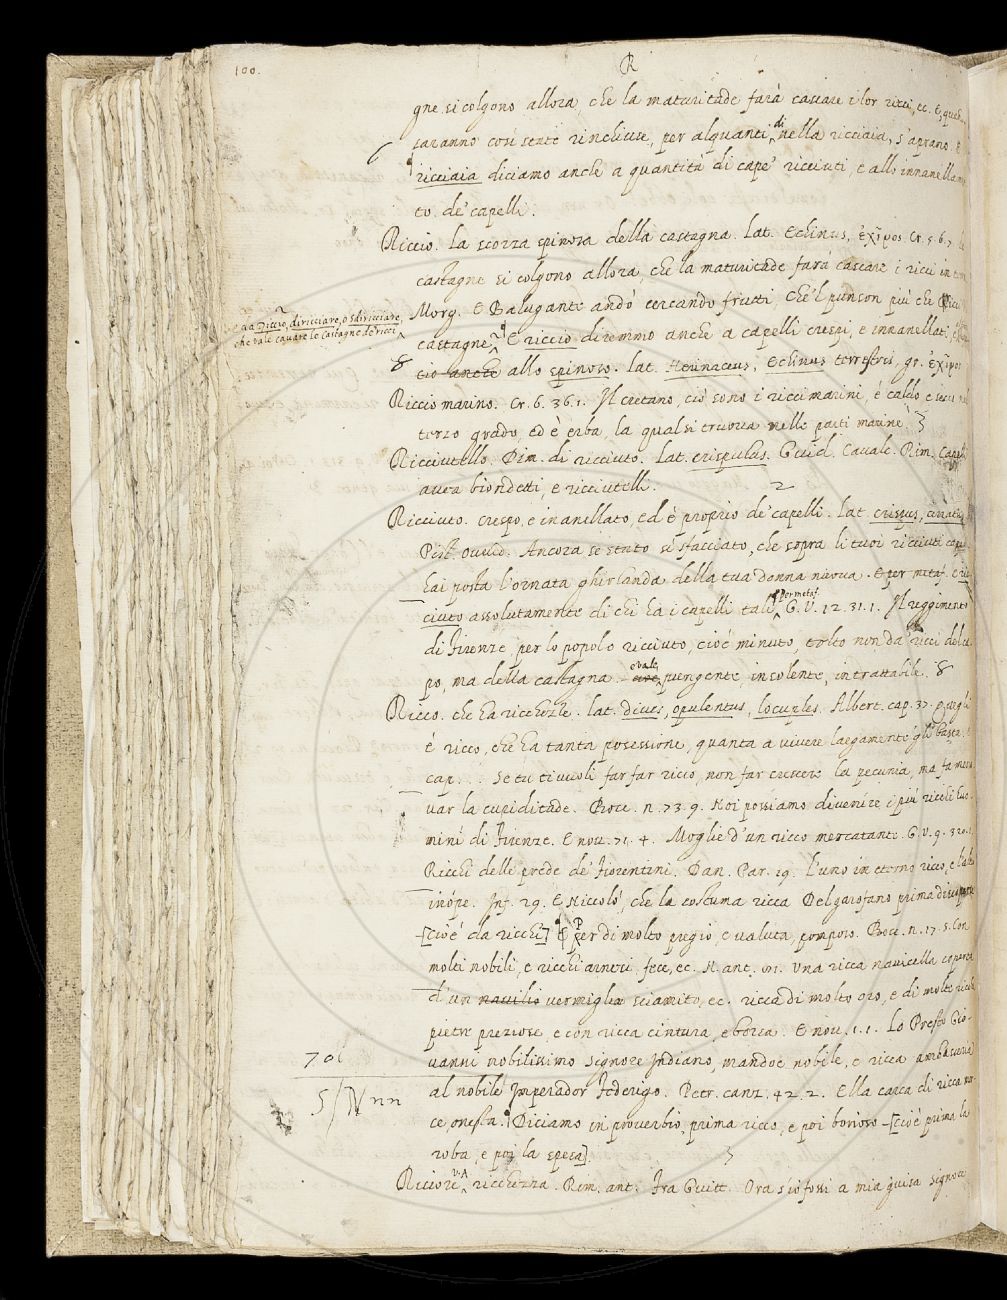 100.
R
gne si colgono allora, che la maturitade farà cascare i lor ricci, ec. E, quando
saranno così state rinchiuse, per alquanti di nella ricciaia, s'aprano. E
ricciaia diciamo anche a quantità di cape' ricciuti, e allo innanellamen
to de' capelli.
Riccio. La scorza spinosa della castagna. Lat. Echinus, ἐχῖνος. Cr. 5. 6. 7. Le
castagne si colgono allora, che la maturitade farà cascare i ricci in terra
Morg. E Balugante andò cercando frutti, Che 'l punson più che
castagne. E riccio diremmo anche a capelli crespi, e innanellati,
e a a Dicco, diricciare, o sdiricciare,
che vale cavare le castagne de' ricci
cio anche allo spinoso. Lat. Herinaceus, Echinus terrestris, gr. ἐχῖνος
Riccio marino. Cr. 6. 36. 1. Il cretano, ciò sono i ricci marini, è caldo, e secco nel
terzo grado, ed è erba, la qual si truova nelle parti marine.
Ricciutello. Dim. di ricciuto. Lat. crispulus. Guid. Cavalc. Rim. Capelli
avea biondetti, e ricciutelli.
Ricciuto. Crespo, e inanellato, ed è proprio de' capelli. Lat. crispus, cirratus
Pist. Ovvid. Ancora se' stato sì sfacciato, che sopra li tuoi ricciuti capelli
hai posta l'ornata ghirlanda della tua donna nuova. E per metaf. E ric
ciuto assolutamente di chi ha i capelli tali. Per metaf. G. V. 12. 31. 1. Il reggimento
di Firenze per lo popolo ricciuto, cioè minuto, tolto non da' ricci del ca
po, ma della castagna. cioè e vale, pungente, insolente, intrattabile.
Ricco. che ha ricchezze. Lat. dives, opulentus, locuples. Albert. cap. 37. quegli
è ricco, che ha tanta possessione, quanta a vivere largamente gli basta. E
cap. . . . Se tu ti vuoli far far ricco, non far crescere la pecunia, ma fa meno
var la cupiditade. Bocc. n. 73. 9. Noi possiamo divenire i più ricchi huo
mini di Firenze. E nov. 71. 4. Moglie d'un ricco mercatante. G. V. 9. 320. 1.
Ricchi delle prede de' Fiorentini. Dan. Par. 19. L'uno in eterno ricco, e l'altro
inòpe. Inf. 29. E Niccolò, che la costuma ricca Del garofano prima discoperse
[cioè da ricchi] E Per di molto pregio, e valuta, pomposo. Bocc. n. 17. 5. Con
molti nobili, e ricchi arnesi fece, ec. N. ant. Una ricca navicella coperta
d'un navilio vermiglio sciamito, ec. ricca di molto oro, e di molte ricche
pietre preziose, e con ricca cintura, e borsa. E nov. 1. 1. Lo Presto Gio-
vanni nobilissimo Signore Indiano, mandoe nobile, e ricca ambasceria
al nobile Imperador Federigo. Petr. canz. 42. 2. Ella carca di ricca mer
ce, onesta. Diciamo in proverbio, prima ricco, e poi borioso [cioè prima la
roba, e poi la spesa].
Riccore V.A. ricchezza. Rim. ant. Fra Guitt. Ora s'io fossi a mia guisa Signore